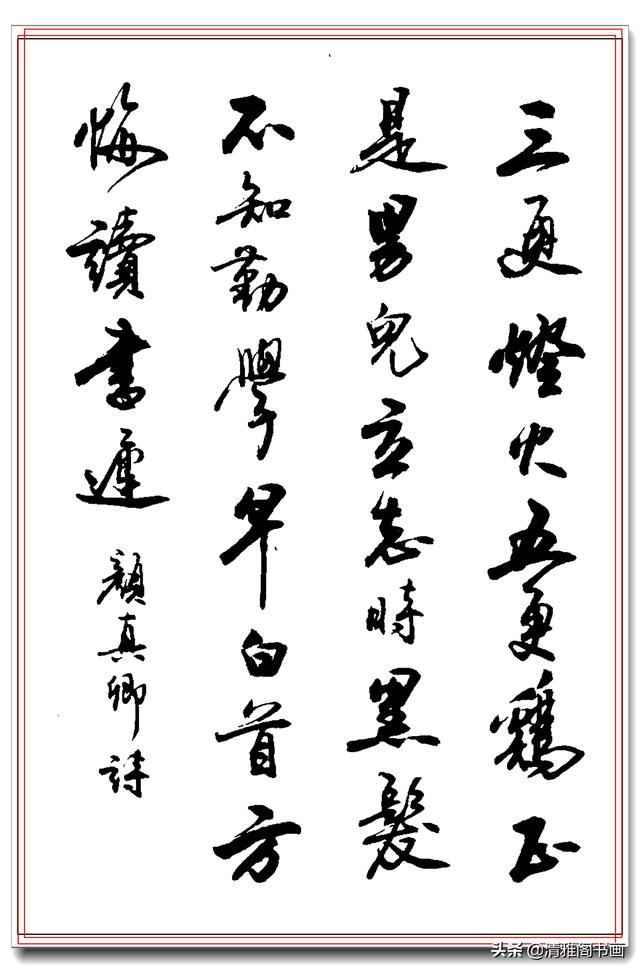 三更燈火五更鷄正
是男兒立志時黑髮
不知勤學早白首方
悔讀書遲
顏真卿詩
头条 @清雅阁书画